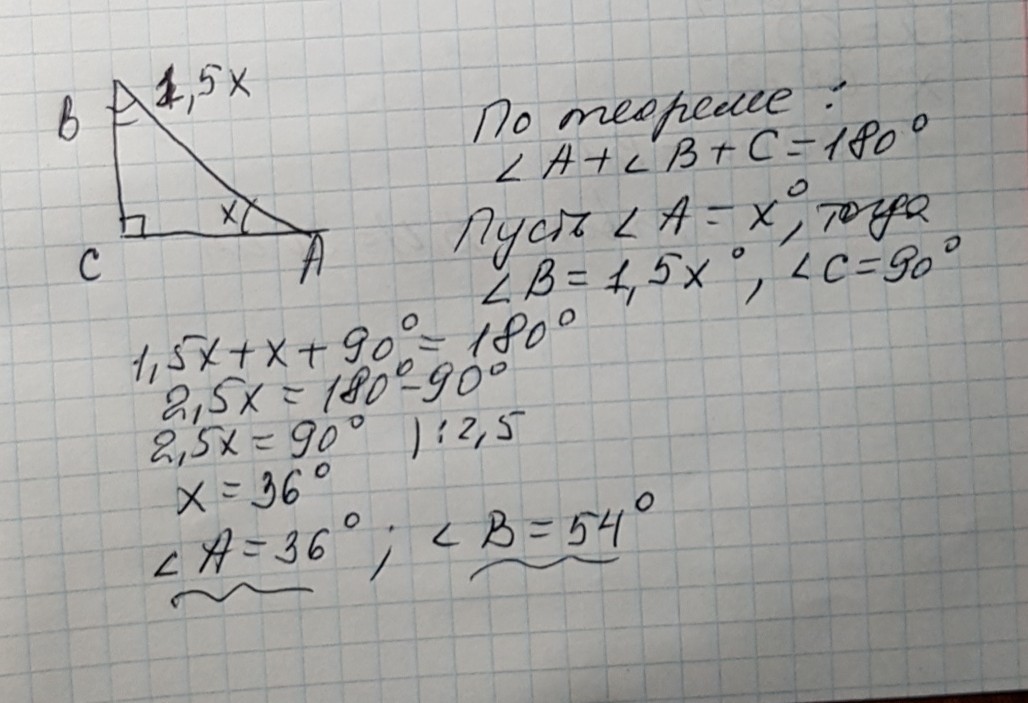 B
1,5x
x
C
A
По теореме :
∠ A + ∠ B + C = 180°
Пусть ∠ A = x°, тогда
∠ B = 1,5x °, ∠ C = 90°
1,5x + x + 90° = 180°
2,5x = 180° - 90°
2,5x = 90° ) : 2,5
x = 36°
∠ A = 36° ; ∠ B = 54°